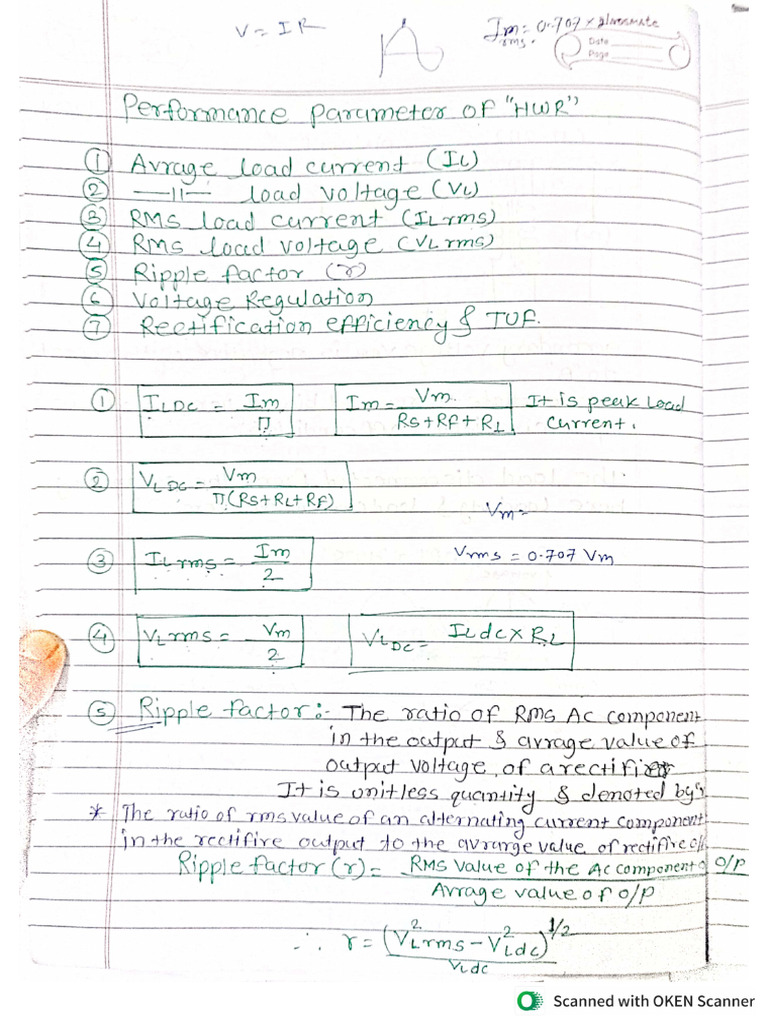 V = IR
Im = 0.707 ×
rms.
Date
Page
Performance Parameter of "HWR"
① Avrage load current (IL)
② —11— load voltage (VL)
③ RMS load current (ILrms)
④ RMS load voltage (VLrms)
⑤ Ripple factor (r)
⑥ Voltage Regulation
⑦ Rectification efficiency & TUF.
① ILDC = Im/π Im = Vm./(Rs+RF+RL) It is peak load
current.
② VLDC = Vm/(π(Rs+RL+RF))
Vm=
③ ILrms = Im/2 Vrms = 0.707 Vm
④ VLrms = Vm/2 VLDC = ILdc × RL
⑤ Ripple factor:- The ratio of RMS Ac component
in the output & avrage value of
output voltage, of a rectifier
It is unitless quantity & denoted by 'r
* The ratio of rms value of an alternating current component
in the rectifire output to the avrarge value of rectifire o/
Ripple factor (r) = RMS value of the Ac component o O/P / Avrage value of o/p
∴ r = (V²Lrms - V²Ldc)^1/2 / VLdc
Scanned with OKEN Scanner